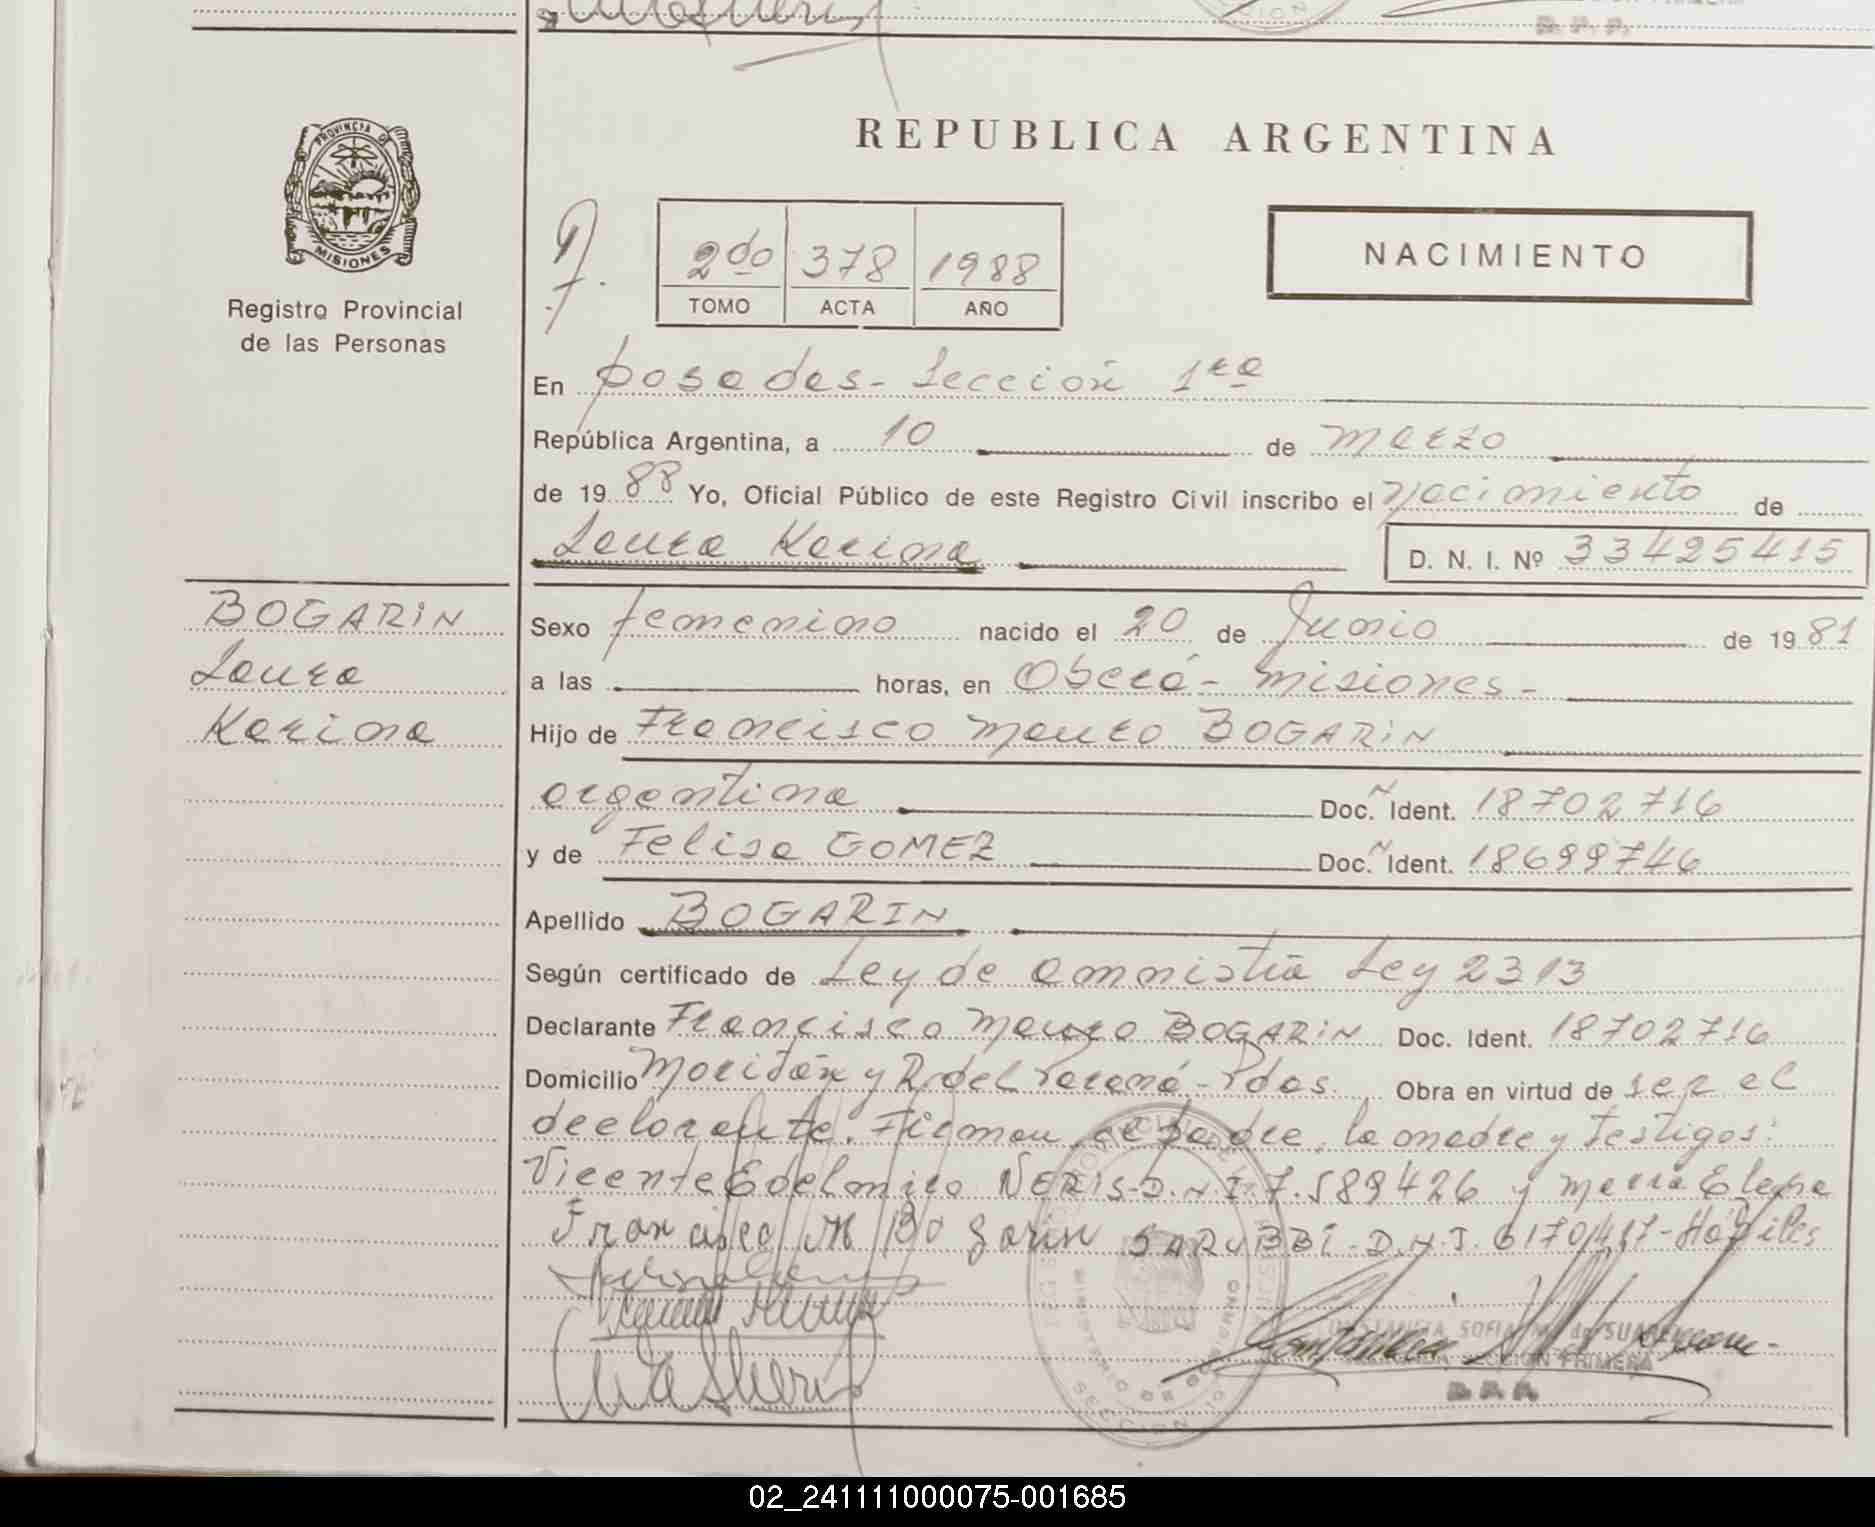 REPUBLICA ARGENTINA
PROVINCIA DE MISIONES
Registro Provincial
de las Personas
2do 378 1988
TOMO ACTA AÑO
NACIMIENTO
En posadas - Sección 1ra
República Argentina, a 10 de marzo
de 1988 Yo, Oficial Público de este Registro Civil inscribo el nacimiento de
Laura Karina D. N. I. Nº 33425415
BOGARIN
Laura
Karina
Sexo femenino nacido el 20 de Junio de 1981
a las horas, en Oberá - misiones -
Hijo de Francisco mauro BOGARIN
argentina Doc. Ident. 18702716
y de Felisa GOMEZ Doc. Ident. 18699746
Apellido BOGARIN
Según certificado de Ley de amnistia Ley 2313
Declarante Francisco mauro BOGARIN Doc. Ident. 18702716
Domicilio y R. del Paraná - Pdas. Obra en virtud de ser el
declarante. Firman el padre, la madre y testigos:
Vicente Edelmiro NERIS - D.N.I. 7.589426 y maria Elena
Francisco M Bogarin SARUBBI - D.N.I. 6170417 - Hábiles
SECCION 1º
MINISTERIO DE GOBIERNO
SOFIA
SECCION PRIMERA
02_241111000075-001685